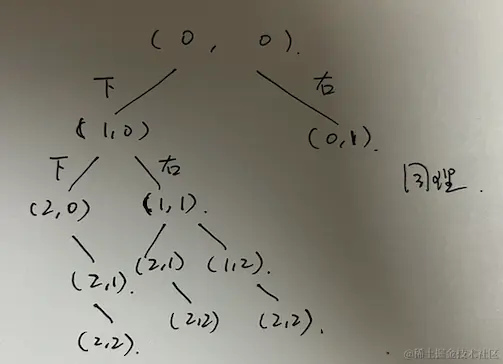 (0, 0).
下 右
(1,0) (0,1).
下 右 同理.
(2,0) (1,1).
(2,1). (2,1) (1,2).
(2,2). (2,2) (2,2).
@稀土掘金技术社区